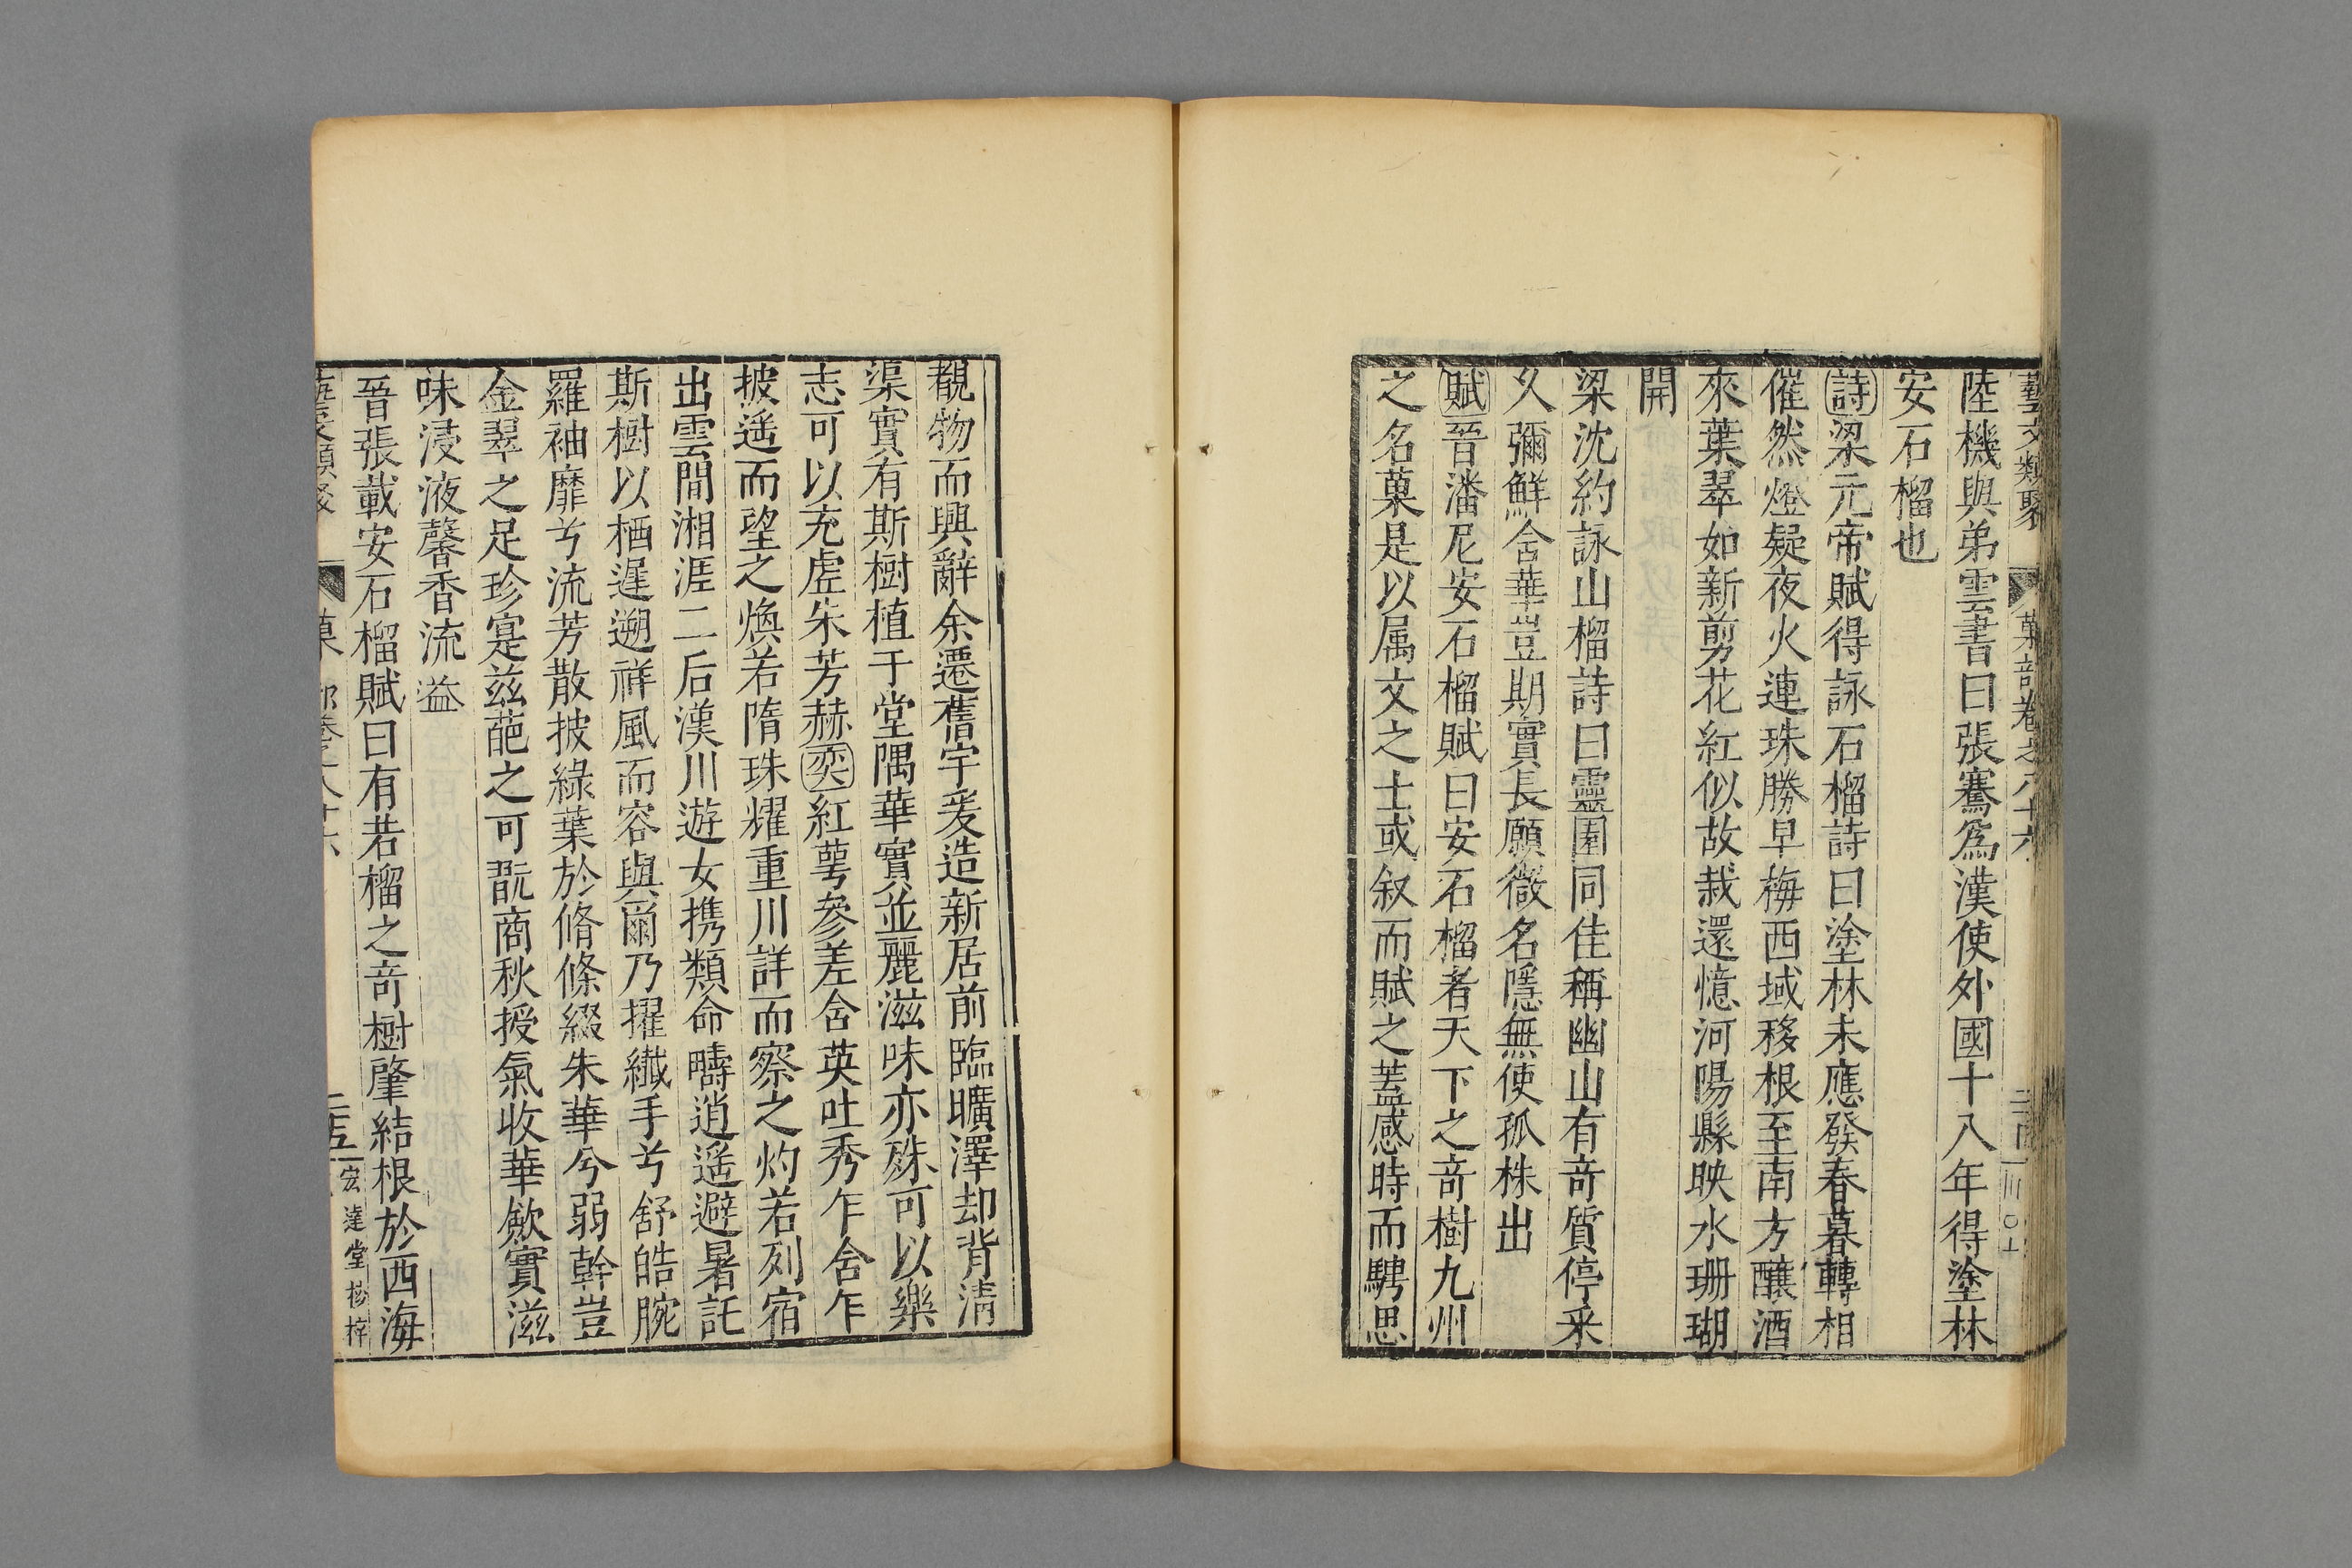 藝文類聚 菓部卷之八十六
陸機與弟雲書曰張騫爲漢使外國十八年得塗林
安石榴也
詩梁元帝賦得詠石榴詩曰塗林未應發春暮轉相
催然燈疑夜火連珠勝早梅西域移根至南方釀酒
來葉翠如新剪花紅似故栽還憶河陽縣映水珊瑚
開
梁沈約詠山榴詩曰靈園同佳稱幽山有奇質停采
乆彌鮮含華豈期實長願微名隱無使孤株出
賦晉潘尼安石榴賦曰安石榴者天下之奇樹九州
之名菓是以属文之士或叙而賦之蓋感時而騁思
覩物而興辭余遷舊宇爰造新居前臨曠澤却背清
渠實有斯樹植于堂隅華實並麗滋味亦殊可以樂
志可以充虛朱芳赫奕紅萼參差含英吐秀乍含乍
披遙而望之煥若隋珠耀重川詳而察之灼若列宿
出雲間湘涯二后漢川遊女携類命疇逍遙避暑託
斯樹以栖遲遡祥風而容與爾乃擢纎手兮舒皓腕
羅袖靡兮流芳散披綠葉於脩條綴朱華兮弱幹豈
金翠之足珍寔兹葩之可翫商秋授氣收華歛實滋
味浸液馨香流溢
晉張載安石榴賦曰有若榴之奇樹肇結根於西海
二十五 宏達堂校梓